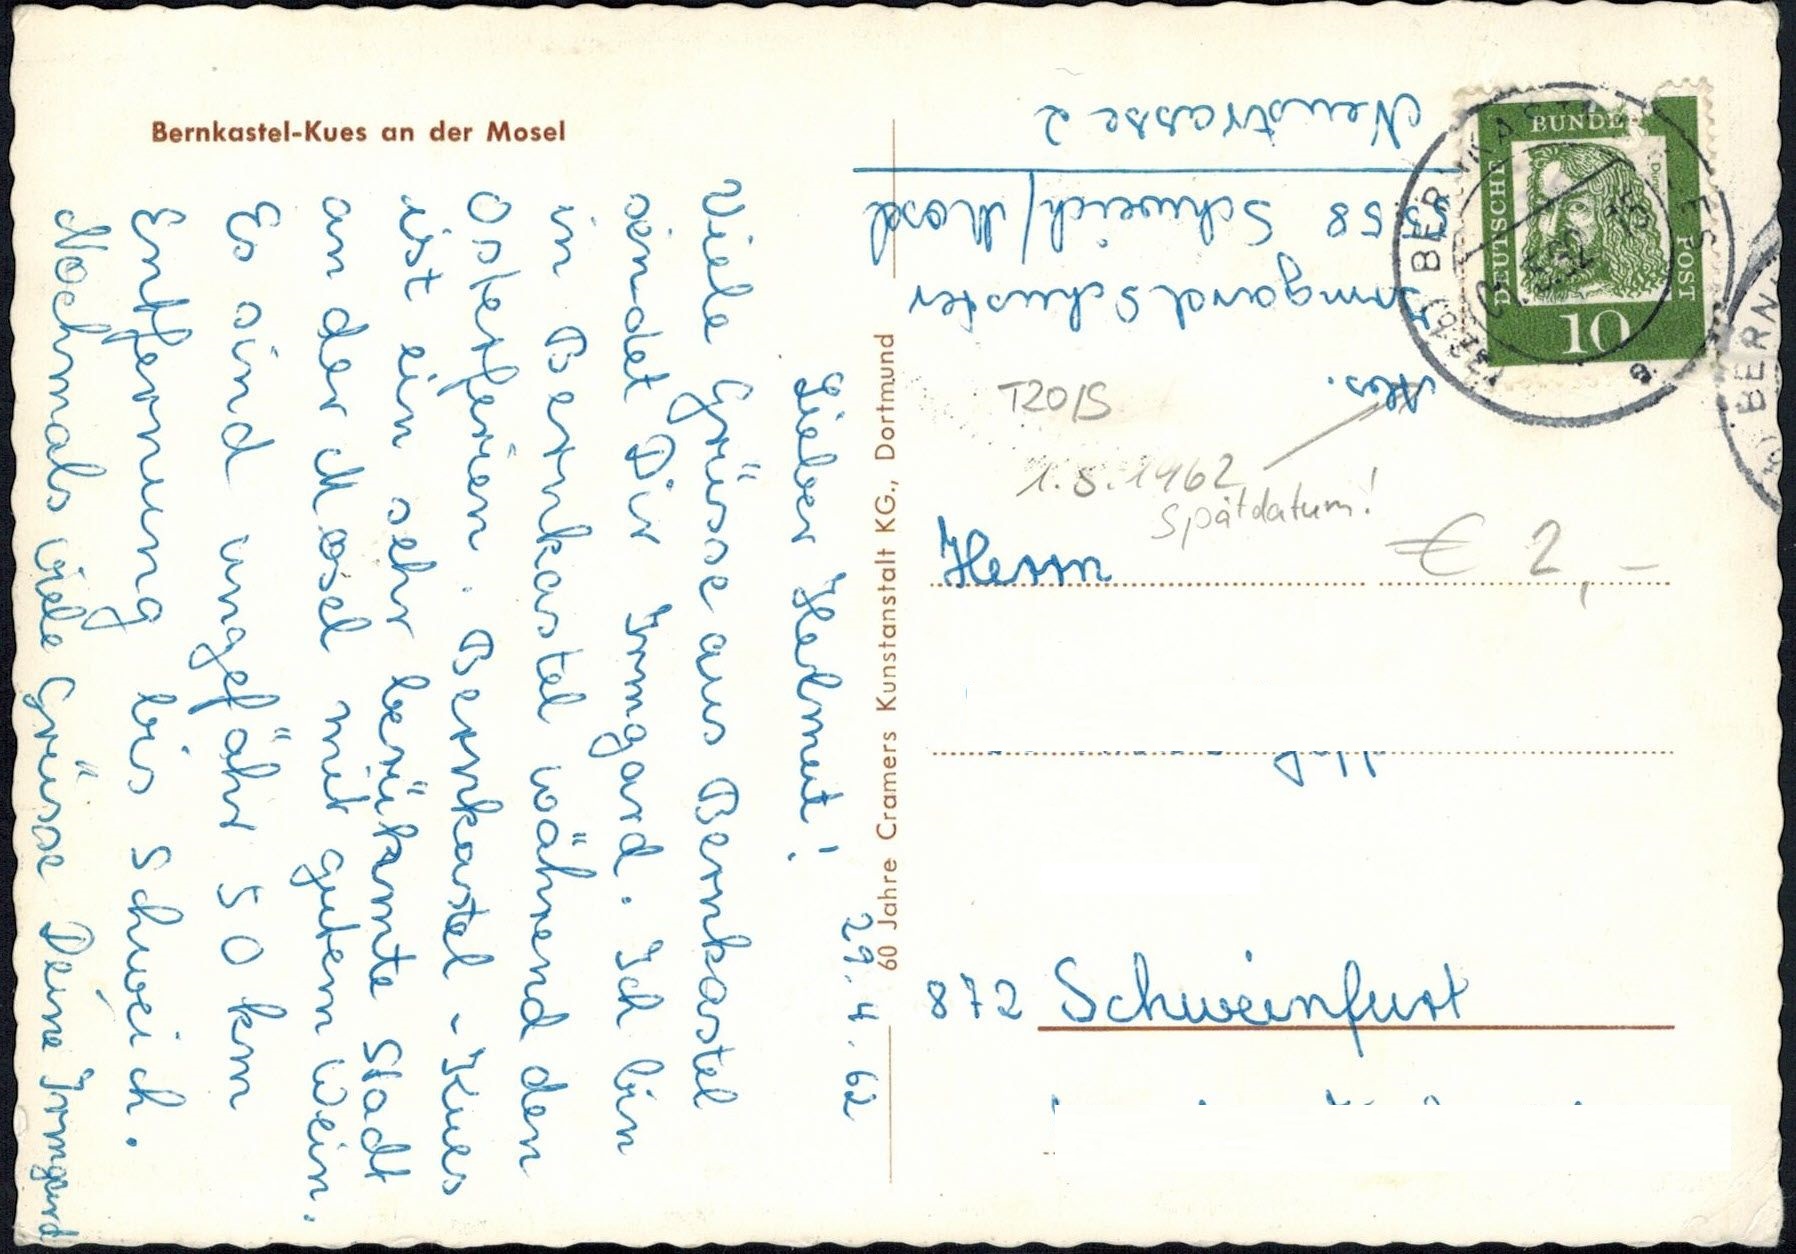 Bernkastel-Kues an der Mosel
29.4.62
Lieber Helmut!
Viele Grüsse aus Bernkastel
sendet Dir Irmgard. Ich bin
in Bernkastel während den
Osterferien. Bernkastel-Kues
ist ein sehr berühmte Stadt
an der Mosel mit gutem Wein.
Es sind ungefähr 50 km
Entfernung bis Schweich.
Nochmals viele Grüsse Deine Irmgard
60 Jahre Cramers Kunstanstalt KG., Dortmund
Abs.
Irmgard Schuster
5558 Schweich/Mosel
Neustrasse 2
DEUTSCHE
BUNDES
POST
10
a
BERN
T20/S
1.5.1962
Spätdatum!
€ 2,-
Herrn
872 Schweinfurt